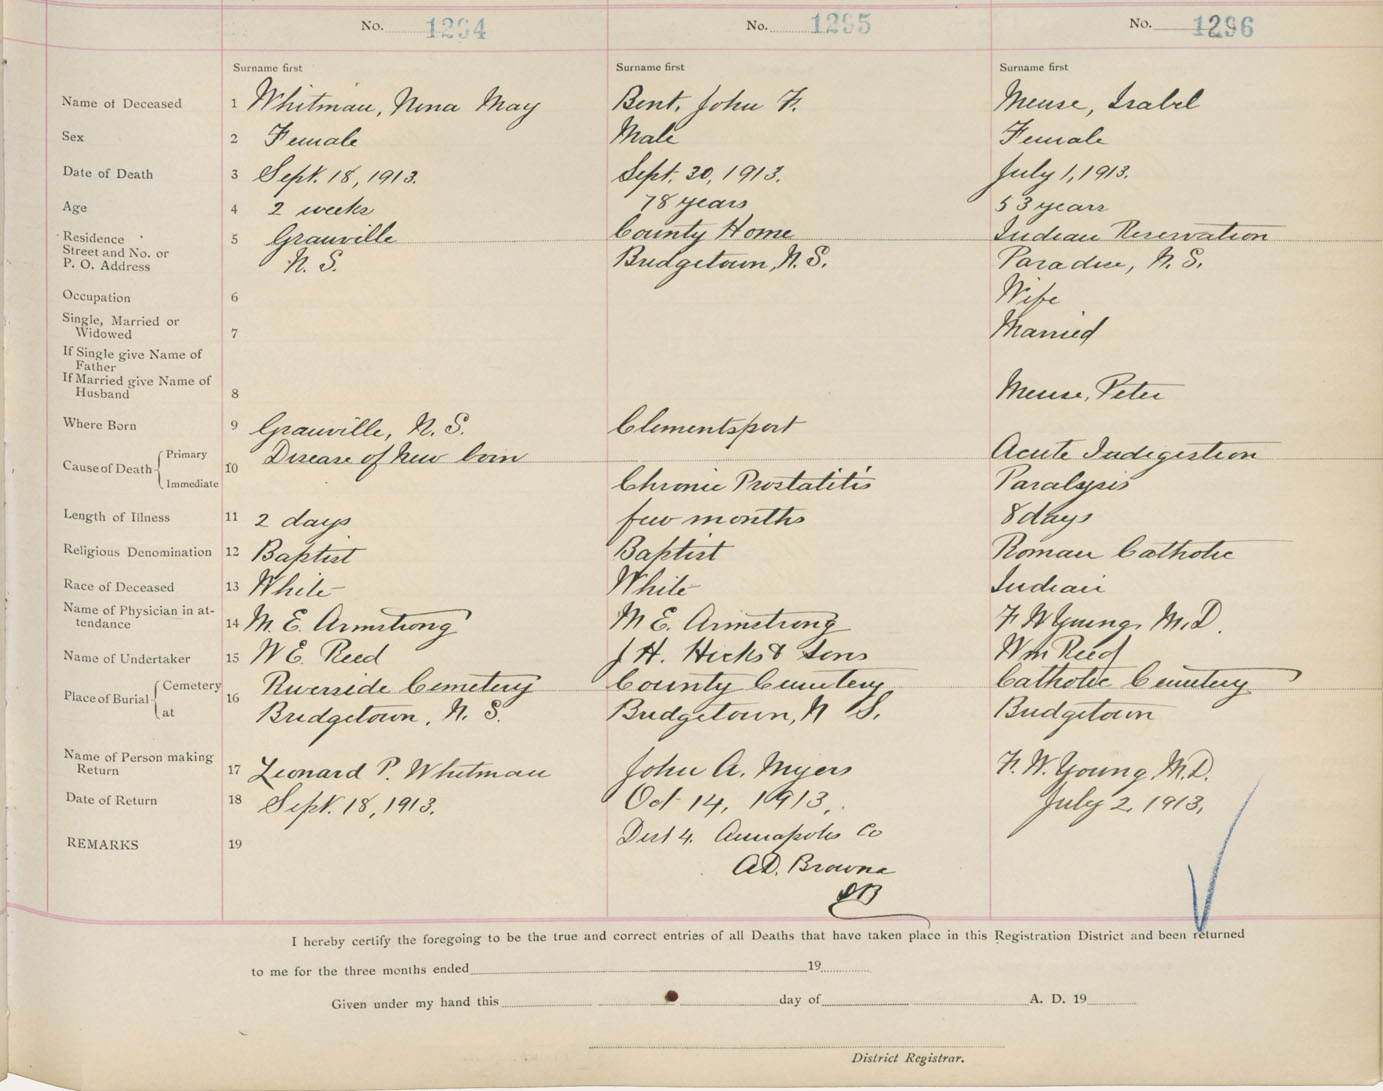 No. 1294 No. 1295 No. 1296
Surname first Surname first Surname first
Name of Deceased 1 Whitman, Nina May Bent, John F. Meuse, Isabel
Sex 2 Female Male Female
Date of Death 3 Sept. 18, 1913. Sept. 20, 1913. July 1, 1913.
Age 4 2 weeks 78 years 53 years
Residence 5 Granville County Home Indian Reservation
Street and No. or
P. O. Address N. S. Bridgetown, N. S. Paradise, N. S.
Occupation 6 Wife
Single, Married or
Widowed 7 Married
If Single give Name of
Father
If Married give Name of
Husband 8 Meuse, Peter
Where Born 9 Granville, N. S. Clementsport
Cause of Death Primary 10 Disease of New born Acute Indigestion
Immediate Chronic Prostatitis Paralysis
Length of Illness 11 2 days few months 8 days
Religious Denomination 12 Baptist Baptist Roman Catholic
Race of Deceased 13 White White Indian
Name of Physician in at-
tendance 14 M. E. Armstrong M E. Armstrong F W Young, M.D.
Name of Undertaker 15 W E. Reed J H. Hicks & Sons Wm Reed
Place of Burial Cemetery 16 Riverside Cemetery County Cemetery Catholic Cemetery
at Bridgetown, N. S. Bridgetown, N S. Bridgetown
Name of Person making
Return 17 Leonard P. Whitman John A. Myers F. W. Young M.D.
Date of Return 18 Sept. 18, 1913. Oct 14, 1913, July 2, 1913,
REMARKS 19 Dist 4. Annapolis Co
A.D. Browne
DR
I hereby certify the foregoing to be the true and correct entries of all Deaths that have taken place in this Registration District and been returned
to me for the three months ended 19
Given under my hand this day of A. D. 19
District Registrar.